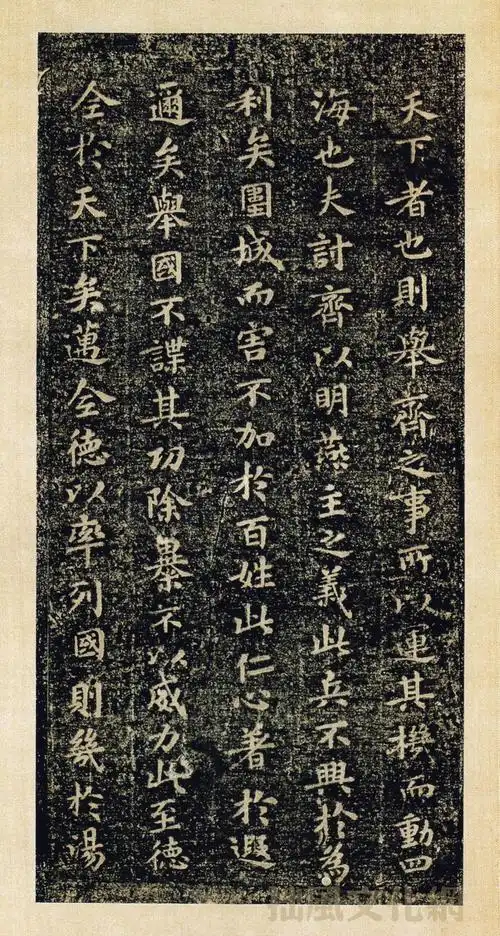 天下者也則舉齊之事所以運其機而動四
海也夫討齊以明燕主之義此兵不興於為
利矣圍城而害不加於百姓此仁心著於遐
邇矣舉國不謀其功除暴不以威力此至德
全於天下矣邁全德以率列國則幾於湯
拙風文化網